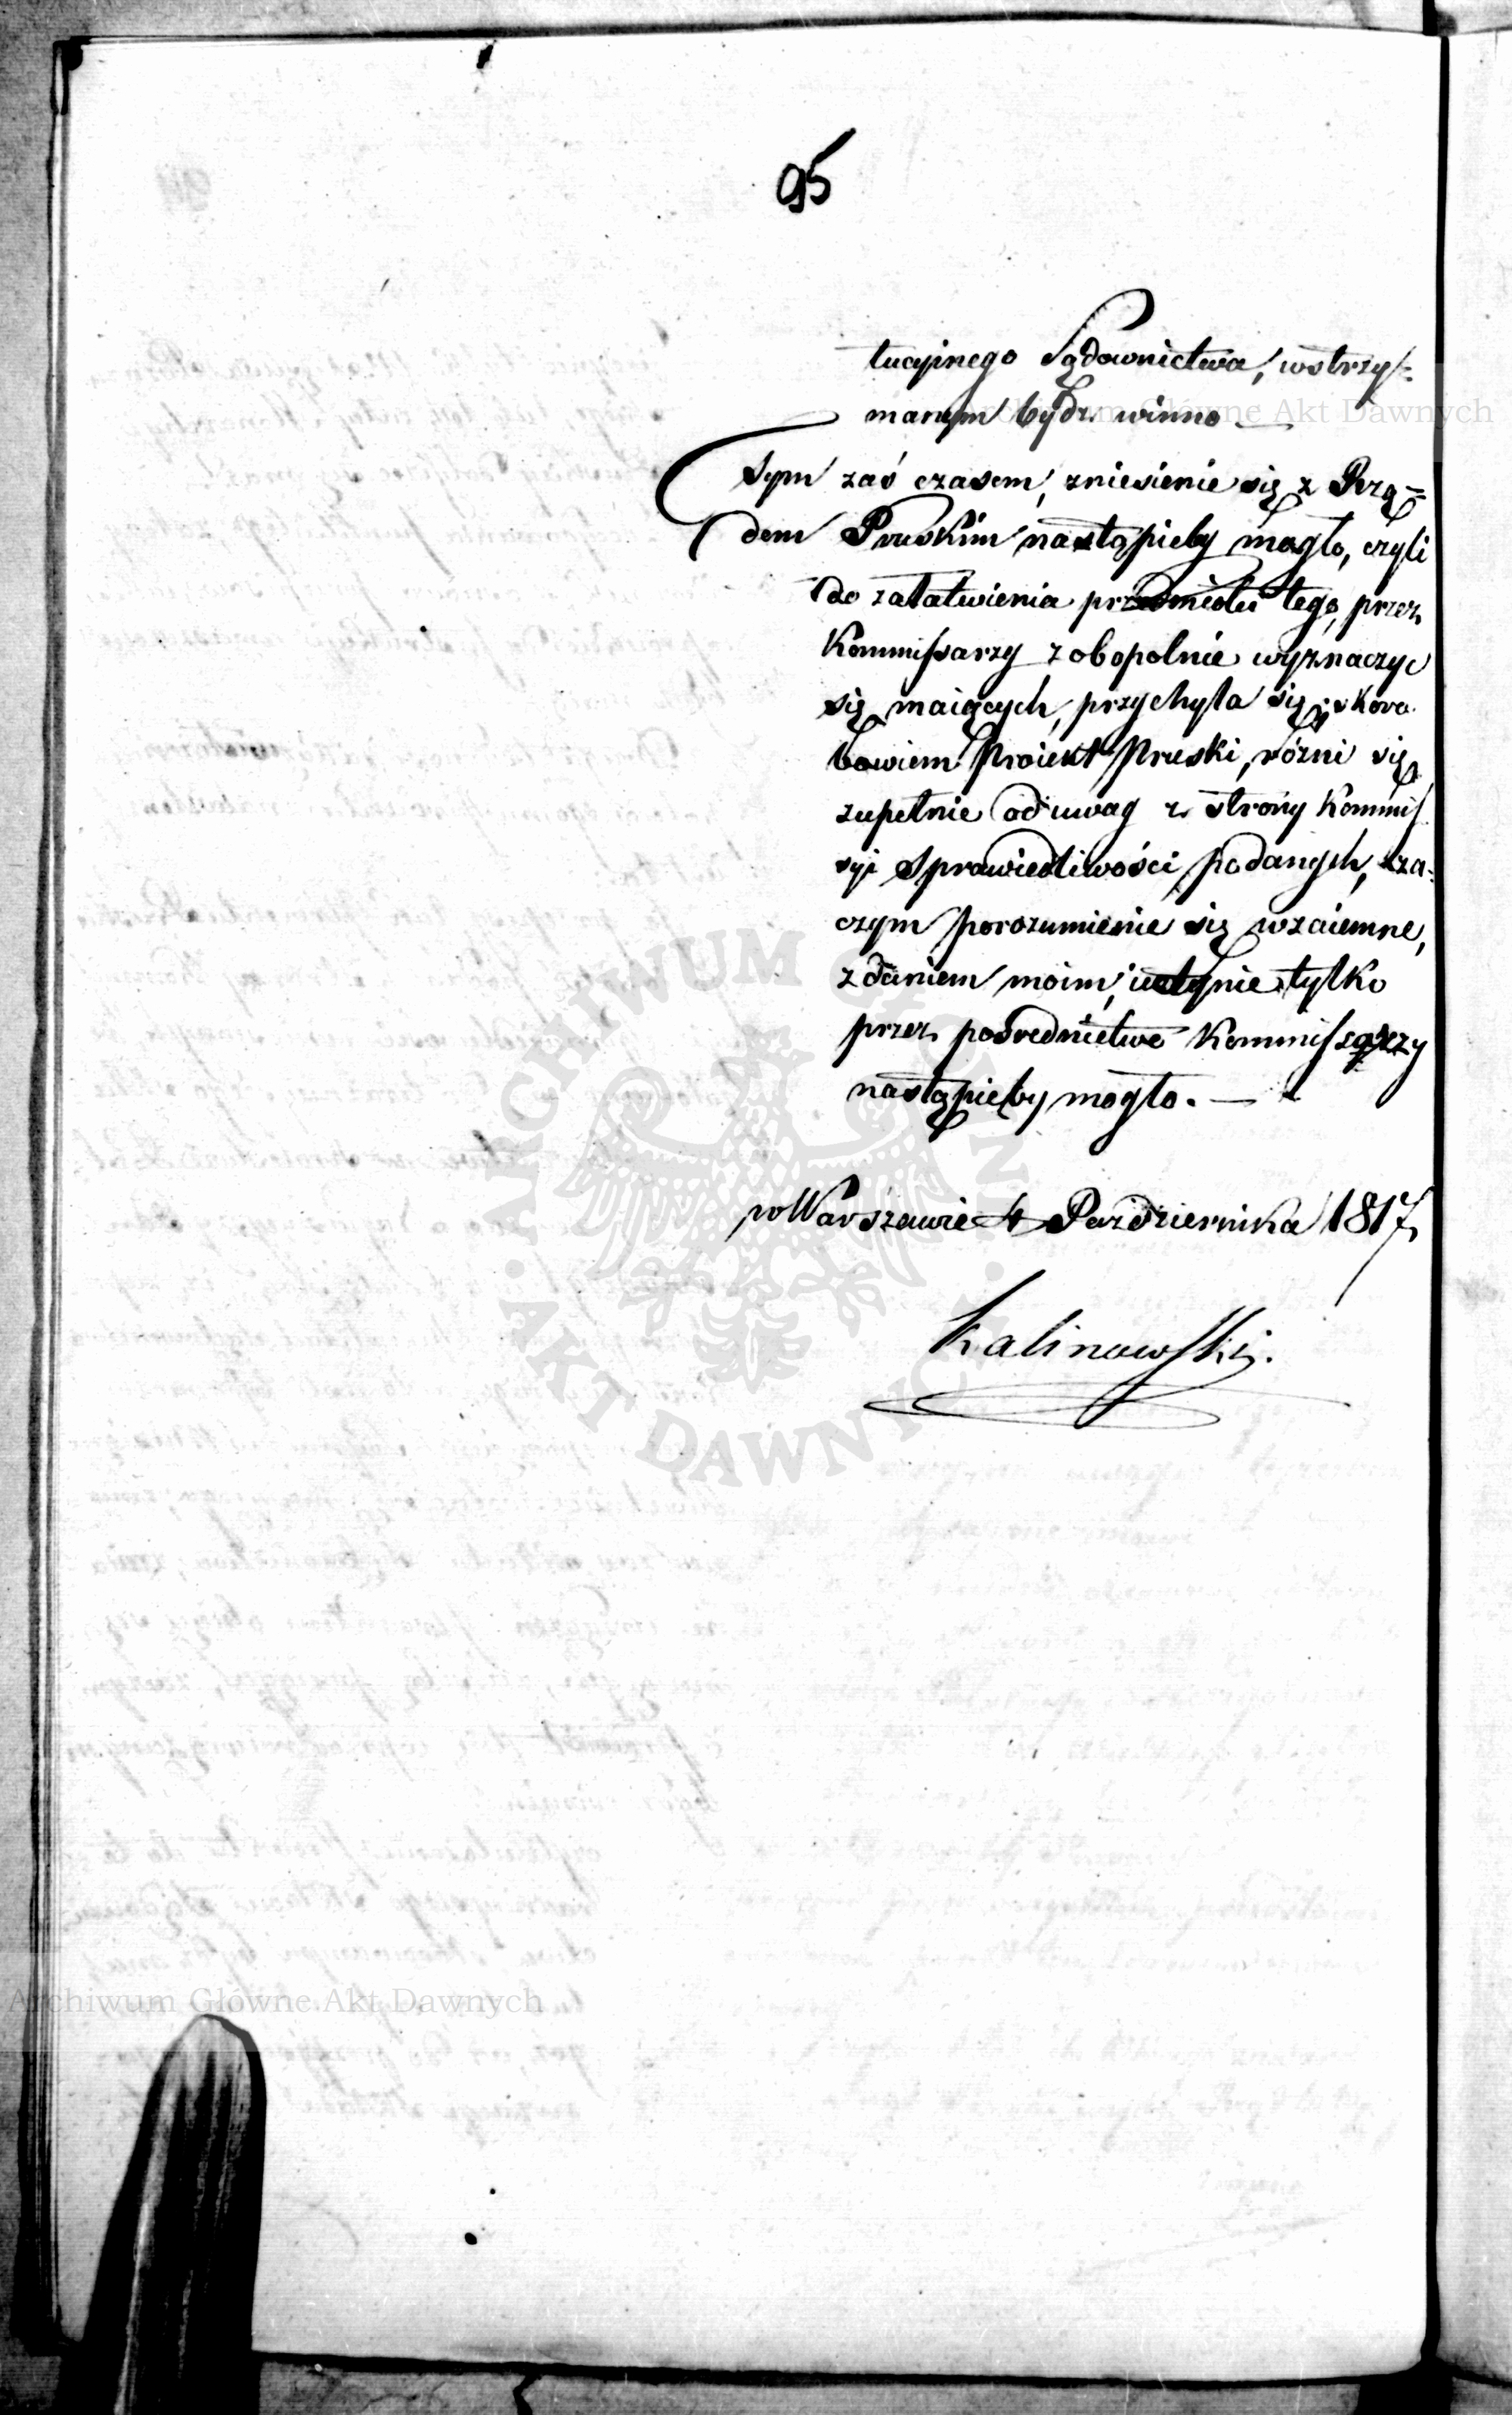 95
tucyinego Sądownictwa, wstrzy=
manym bydź winno —
tym zaś czasem, zniesienie się z Rzą=
dem Pruskim nastąpićby mogło, czyli
do załatwienia przedmiotu tego, przez
Kommissarzy zobopólnie wyznaczyć
się maiących, przychyla się; skoro
bowiem Proiekt Pruski, różni się
zupełnie od uwag z strony Kommis
syi Sprawiedliwości podanych, za=
czym porozumienie się wzaiemne,
zdaniem moim, iedynie tylko
przez pośrednictwo Kommissarzy
nastąpićby mogło. —
w Warszawie 4 Października 1817
Kalinowski.
ARCHIWUM GŁÓWNE
AKT DAWNYCH
Archiwum Główne Akt Dawnych
Archiwum Główne Akt Dawnych